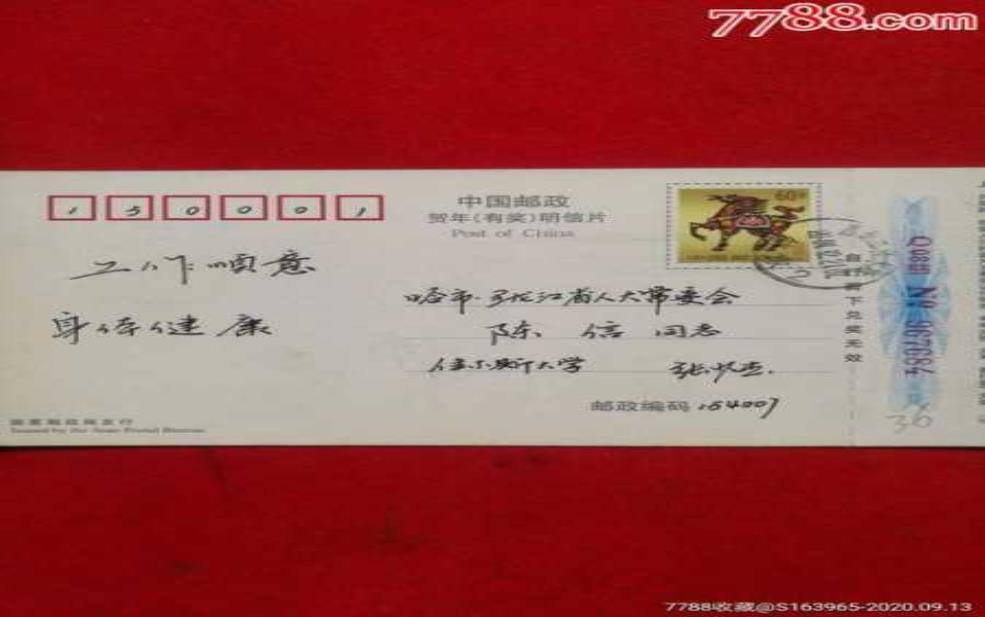 7788.com
150001
中国邮政
贺年(有奖)明信片
Post of China
60分
工作顺意
身体健康
哈市·黑龙江省人大常委会
陈信同志
佳木斯大学
邮政编码 154007
国家邮政局发行
Issued by the State Postal Bureau
下兑奖无效
No 967684
36
7788收藏@S163965-2020.09.13